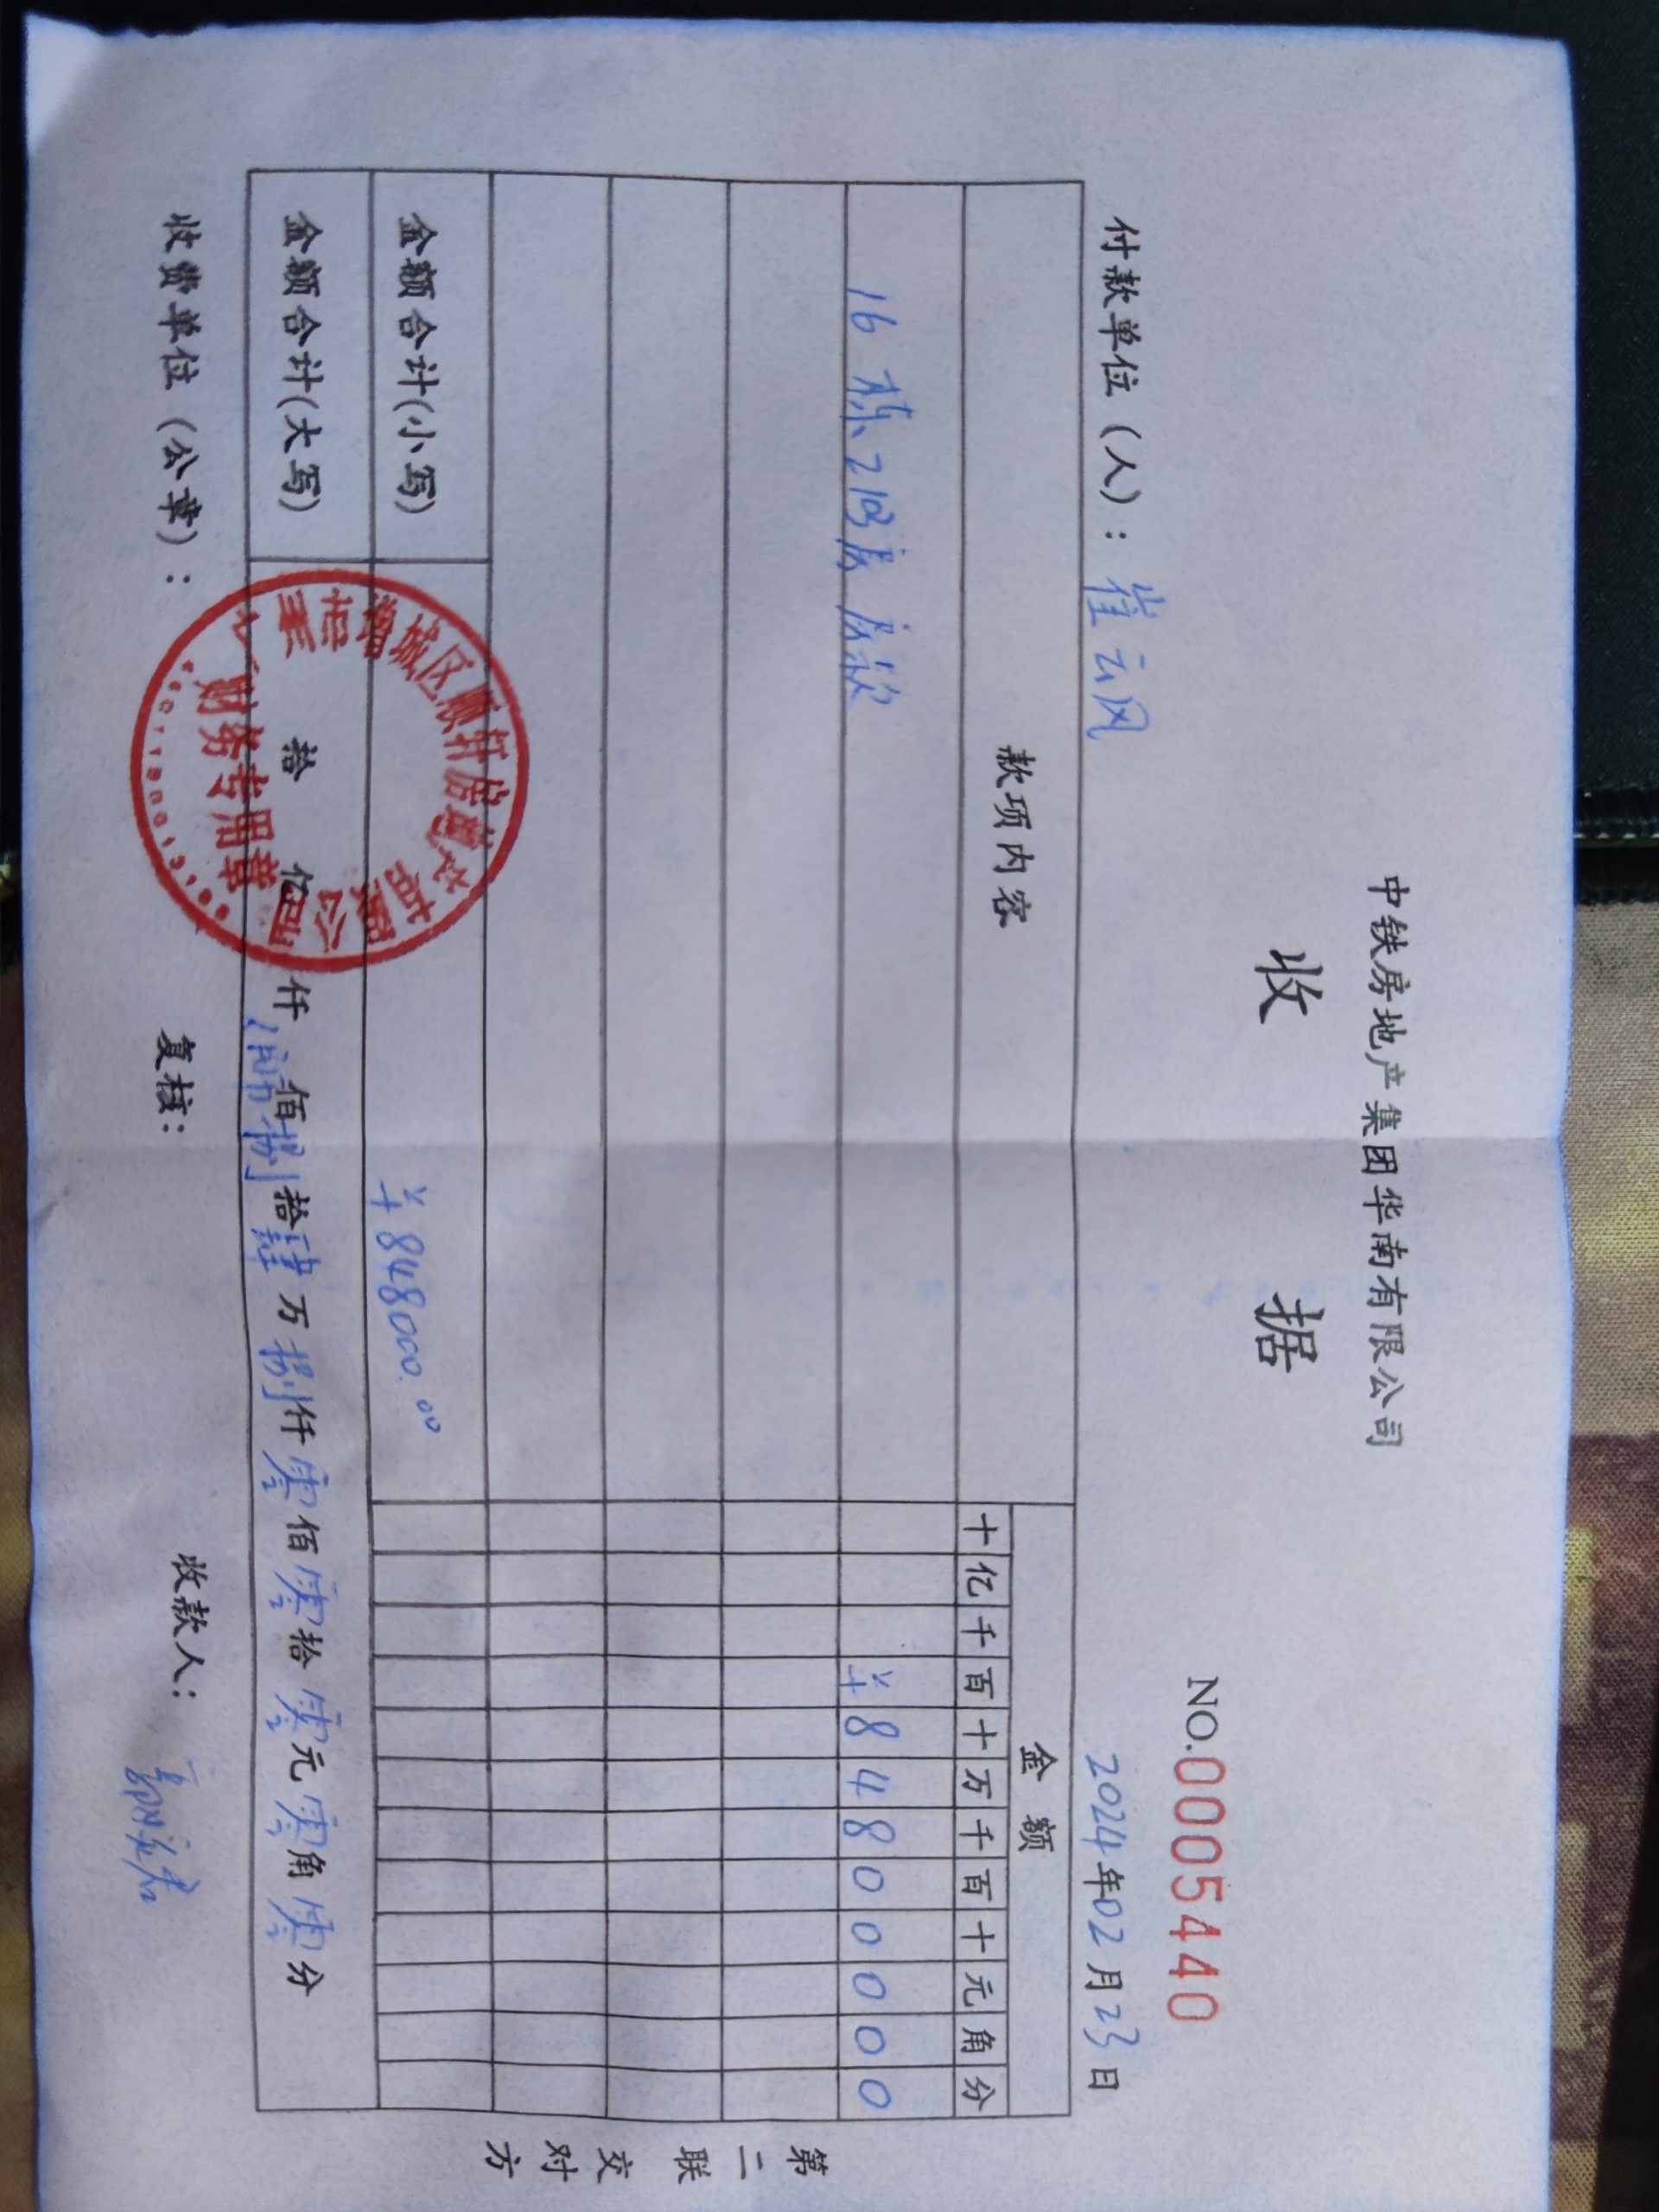 中铁房地产集团华南有限公司
收 据
NO.0005440
付款单位（人）：崔云风 2024年02月23日
款项内容 金额
十亿千百十万千百十元角分
16栋2103房房款 ¥84800000
金额合计(小写) ¥848000.00
金额合计(大写) 拾 亿 仟 佰捌拾肆万捌仟零佰零拾零元零角零分
收费单位（公章）： 复核： 收款人：
增城区顺轩房地
公司
财务专用章
第二联交对方